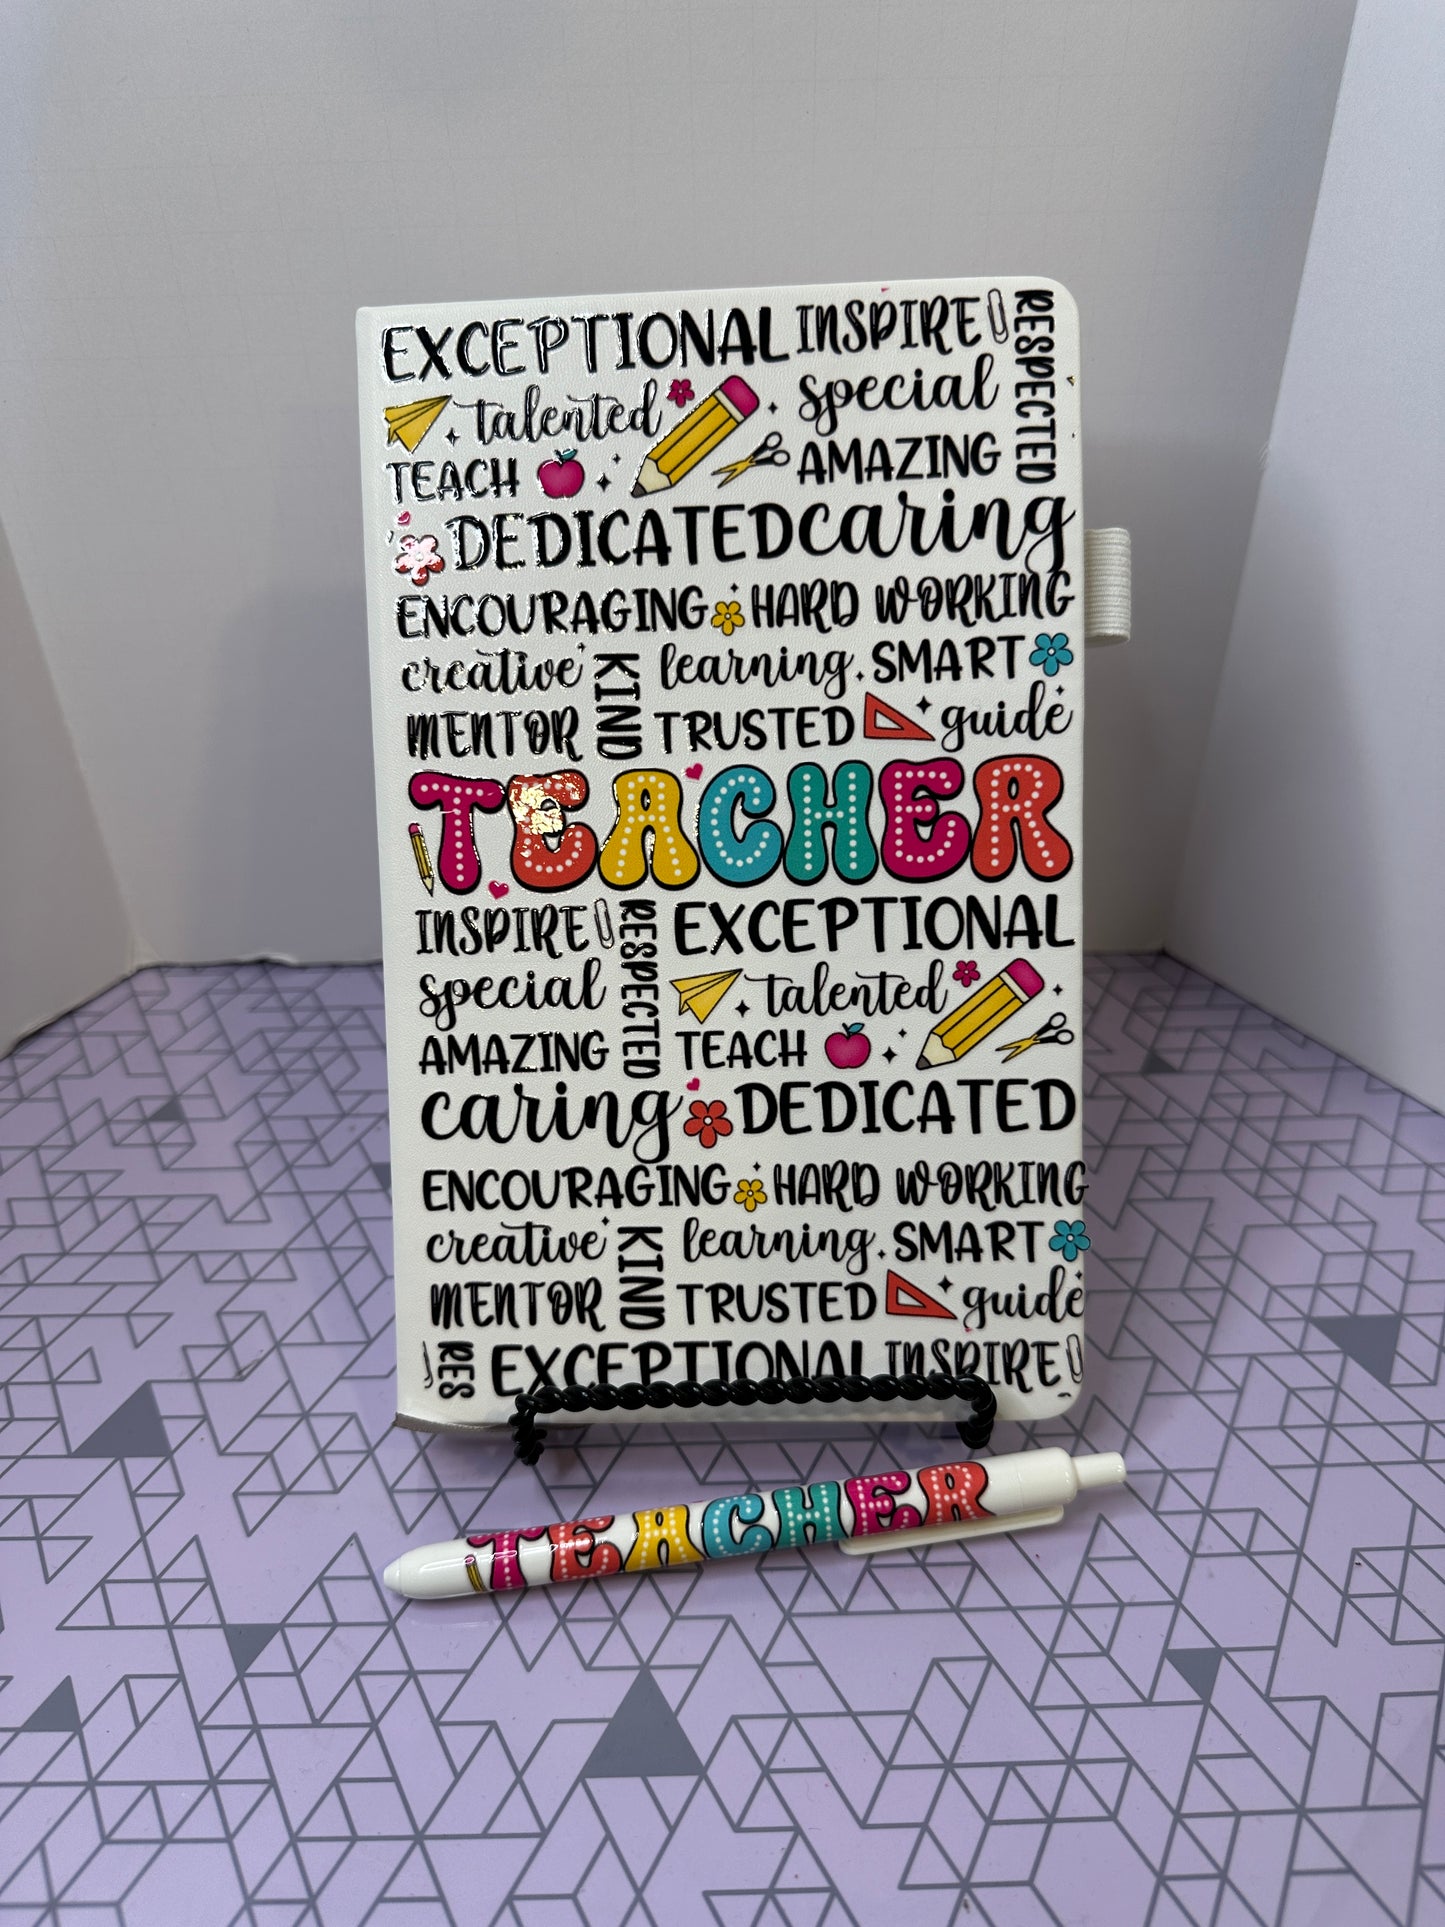 EXCEPTIONAL INSPIRE RESPECTED
talented special
TEACH AMAZING
DEDICATED caring
ENCOURAGING HARD WORKING
creative KIND learning SMART
MENTOR TRUSTED guide
TEACHER
INSPIRE RESPECTED EXCEPTIONAL
special talented
AMAZING TEACH
caring DEDICATED
ENCOURAGING HARD WORKING
creative KIND learning SMART
MENTOR TRUSTED guide
RES EXCEPTIONAL INSPIRE
TEACHER